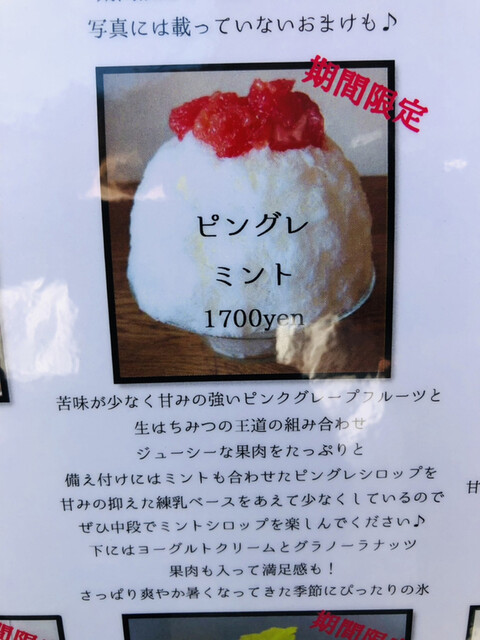 写真には載っていないおまけも♪
期間限定
ピングレ
ミント
1700yen
苦味が少なく甘みの強いピンクグレープフルーツと
生はちみつの王道の組み合わせ
ジューシーな果肉をたっぷりと
備え付けにはミントも合わせたピングレシロップを
甘みの抑えた練乳ベースをあえて少なくしているので
ぜひ中段でミントシロップを楽しんでください♪
下にはヨーグルトクリームとグラノーラナッツ
果肉も入って満足感も！
さっぱり爽やか暑くなってきた季節にぴったりの氷
甘
期間限定
期間限定